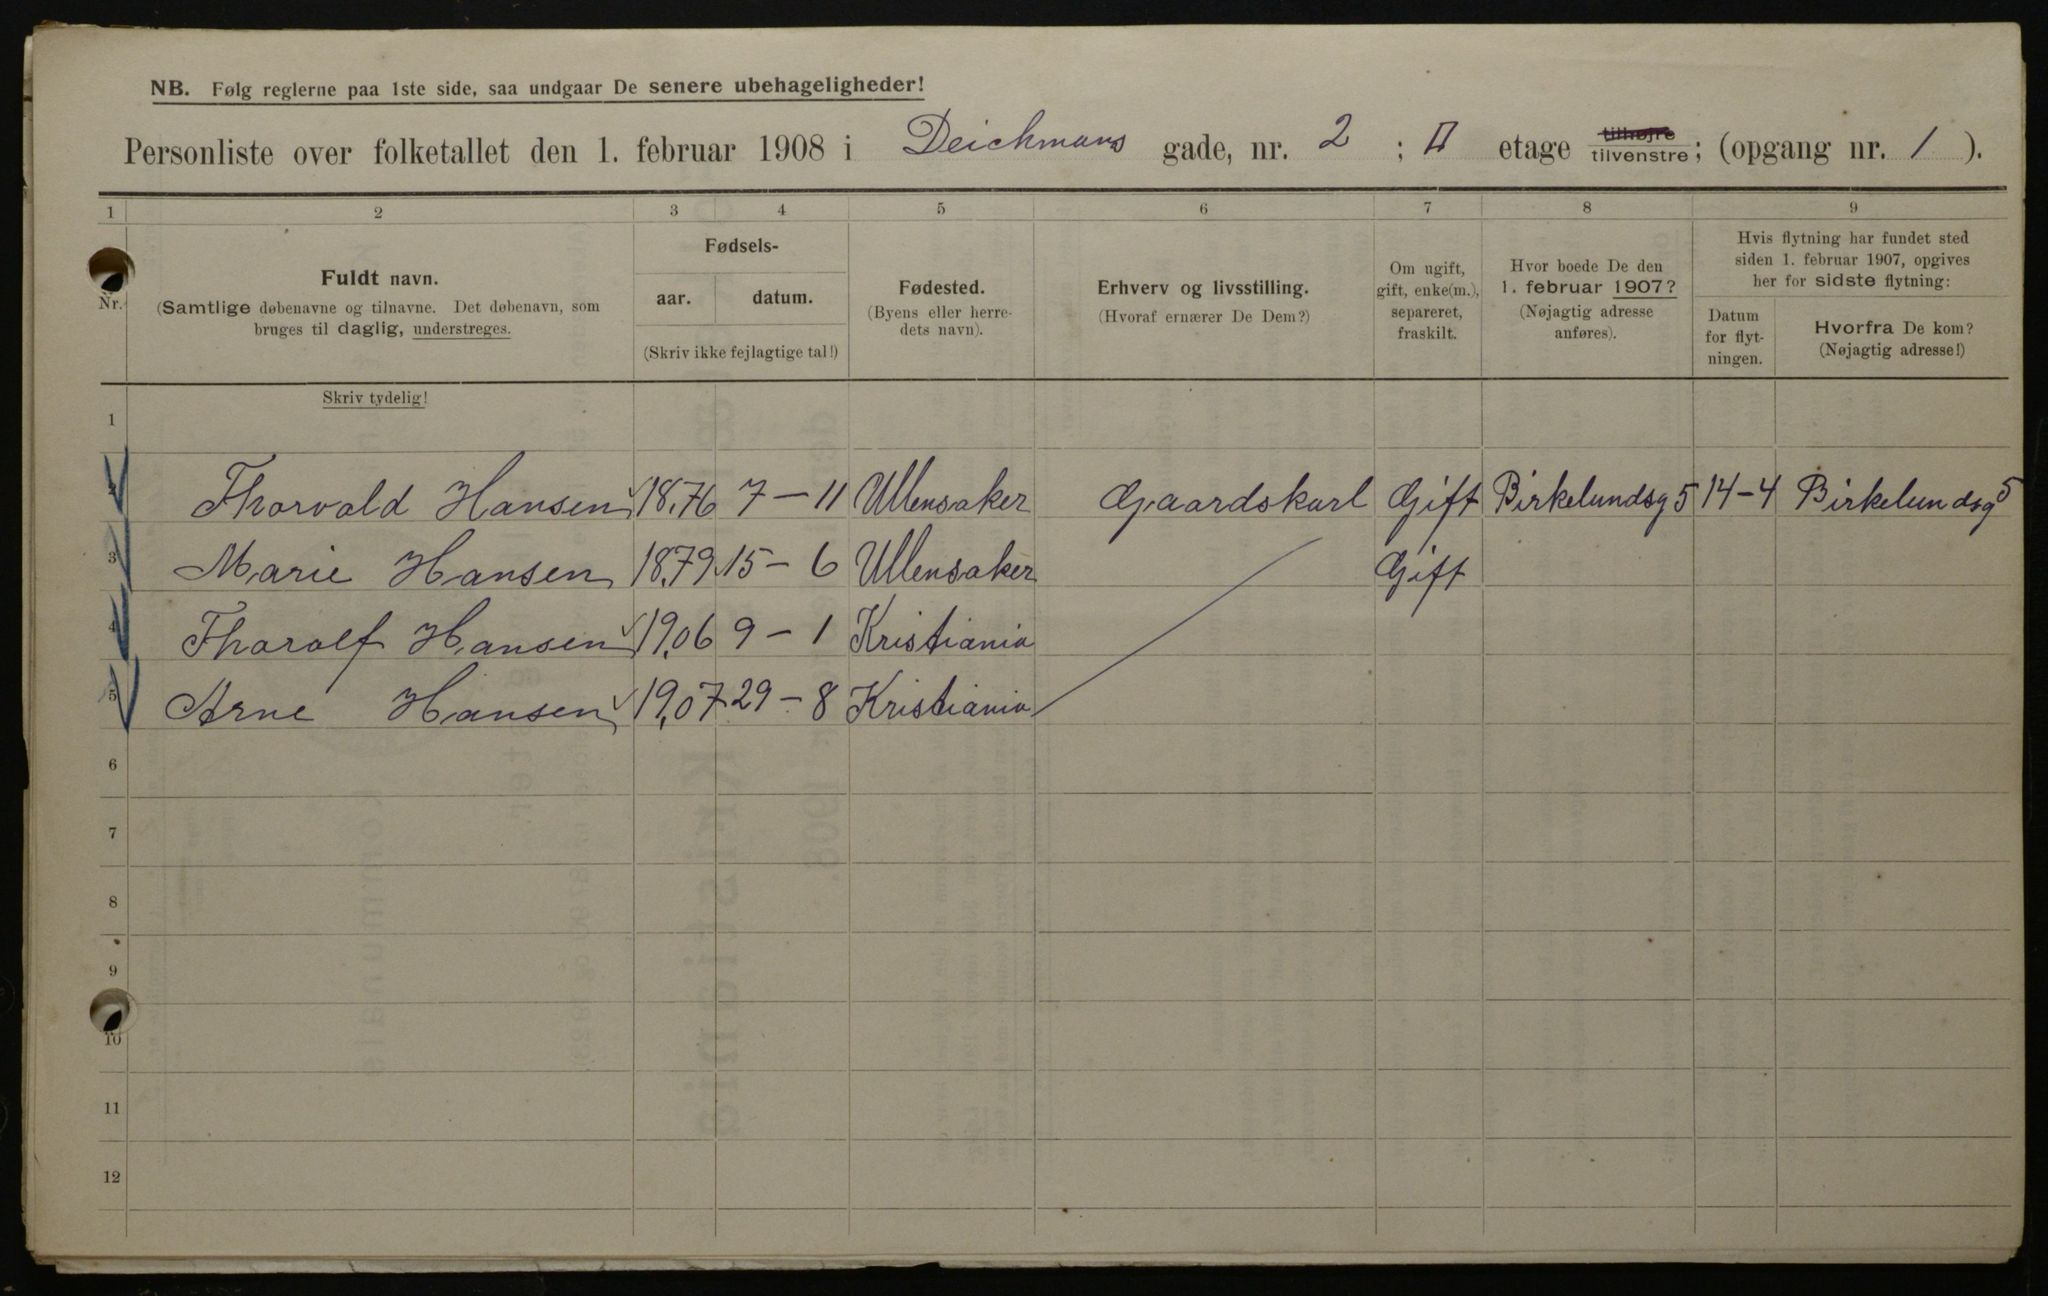 NB. Følg reglerne paa 1ste side, saa undgaar De senere ubehageligheder!
Personliste over folketallet den 1. februar 1908 i Deichmans gade, nr. 2 ; II etage tilhøjre tilvenstre; (opgang nr. 1 ).
1 2 3 4 5 6 7 8 9
Nr.
Fuldt navn.
(Samtlige døbenavne og tilnavne. Det døbenavn, som
bruges til daglig, understreges.
Skriv tydelig!
Fødsels-
aar. datum.
(Skriv ikke fejlagtige tal!)
Fødested.
(Byens eller herre-
dets navn).
Erhverv og livsstilling.
(Hvoraf ernærer De Dem?)
Om ugift,
gift, enke(m.),
separeret,
fraskilt.
Hvor boede De den
1. februar 1907?
(Nøjagtig adresse
anføres).
Hvis flytning har fundet sted
siden 1. februar 1907, opgives
her for sidste flytning:
Datum
for flyt-
ningen.
Hvorfra De kom?
(Nøjagtig adresse!)
1
2 Thorvald Hansen 18,76 7 – 11 Ullensaker Gaardskarl Gift Birkelundsg 5 14 – 4 Birkelundsg 5
3 Marie Hansen 18,79 15 – 6 Ullensaker Gift
4 Tharalf Hansen 19,06 9 – 1 Kristiania
5 Arne Hansen 19,07 29 – 8 Kristiania
6
7
8
9
10
11
12